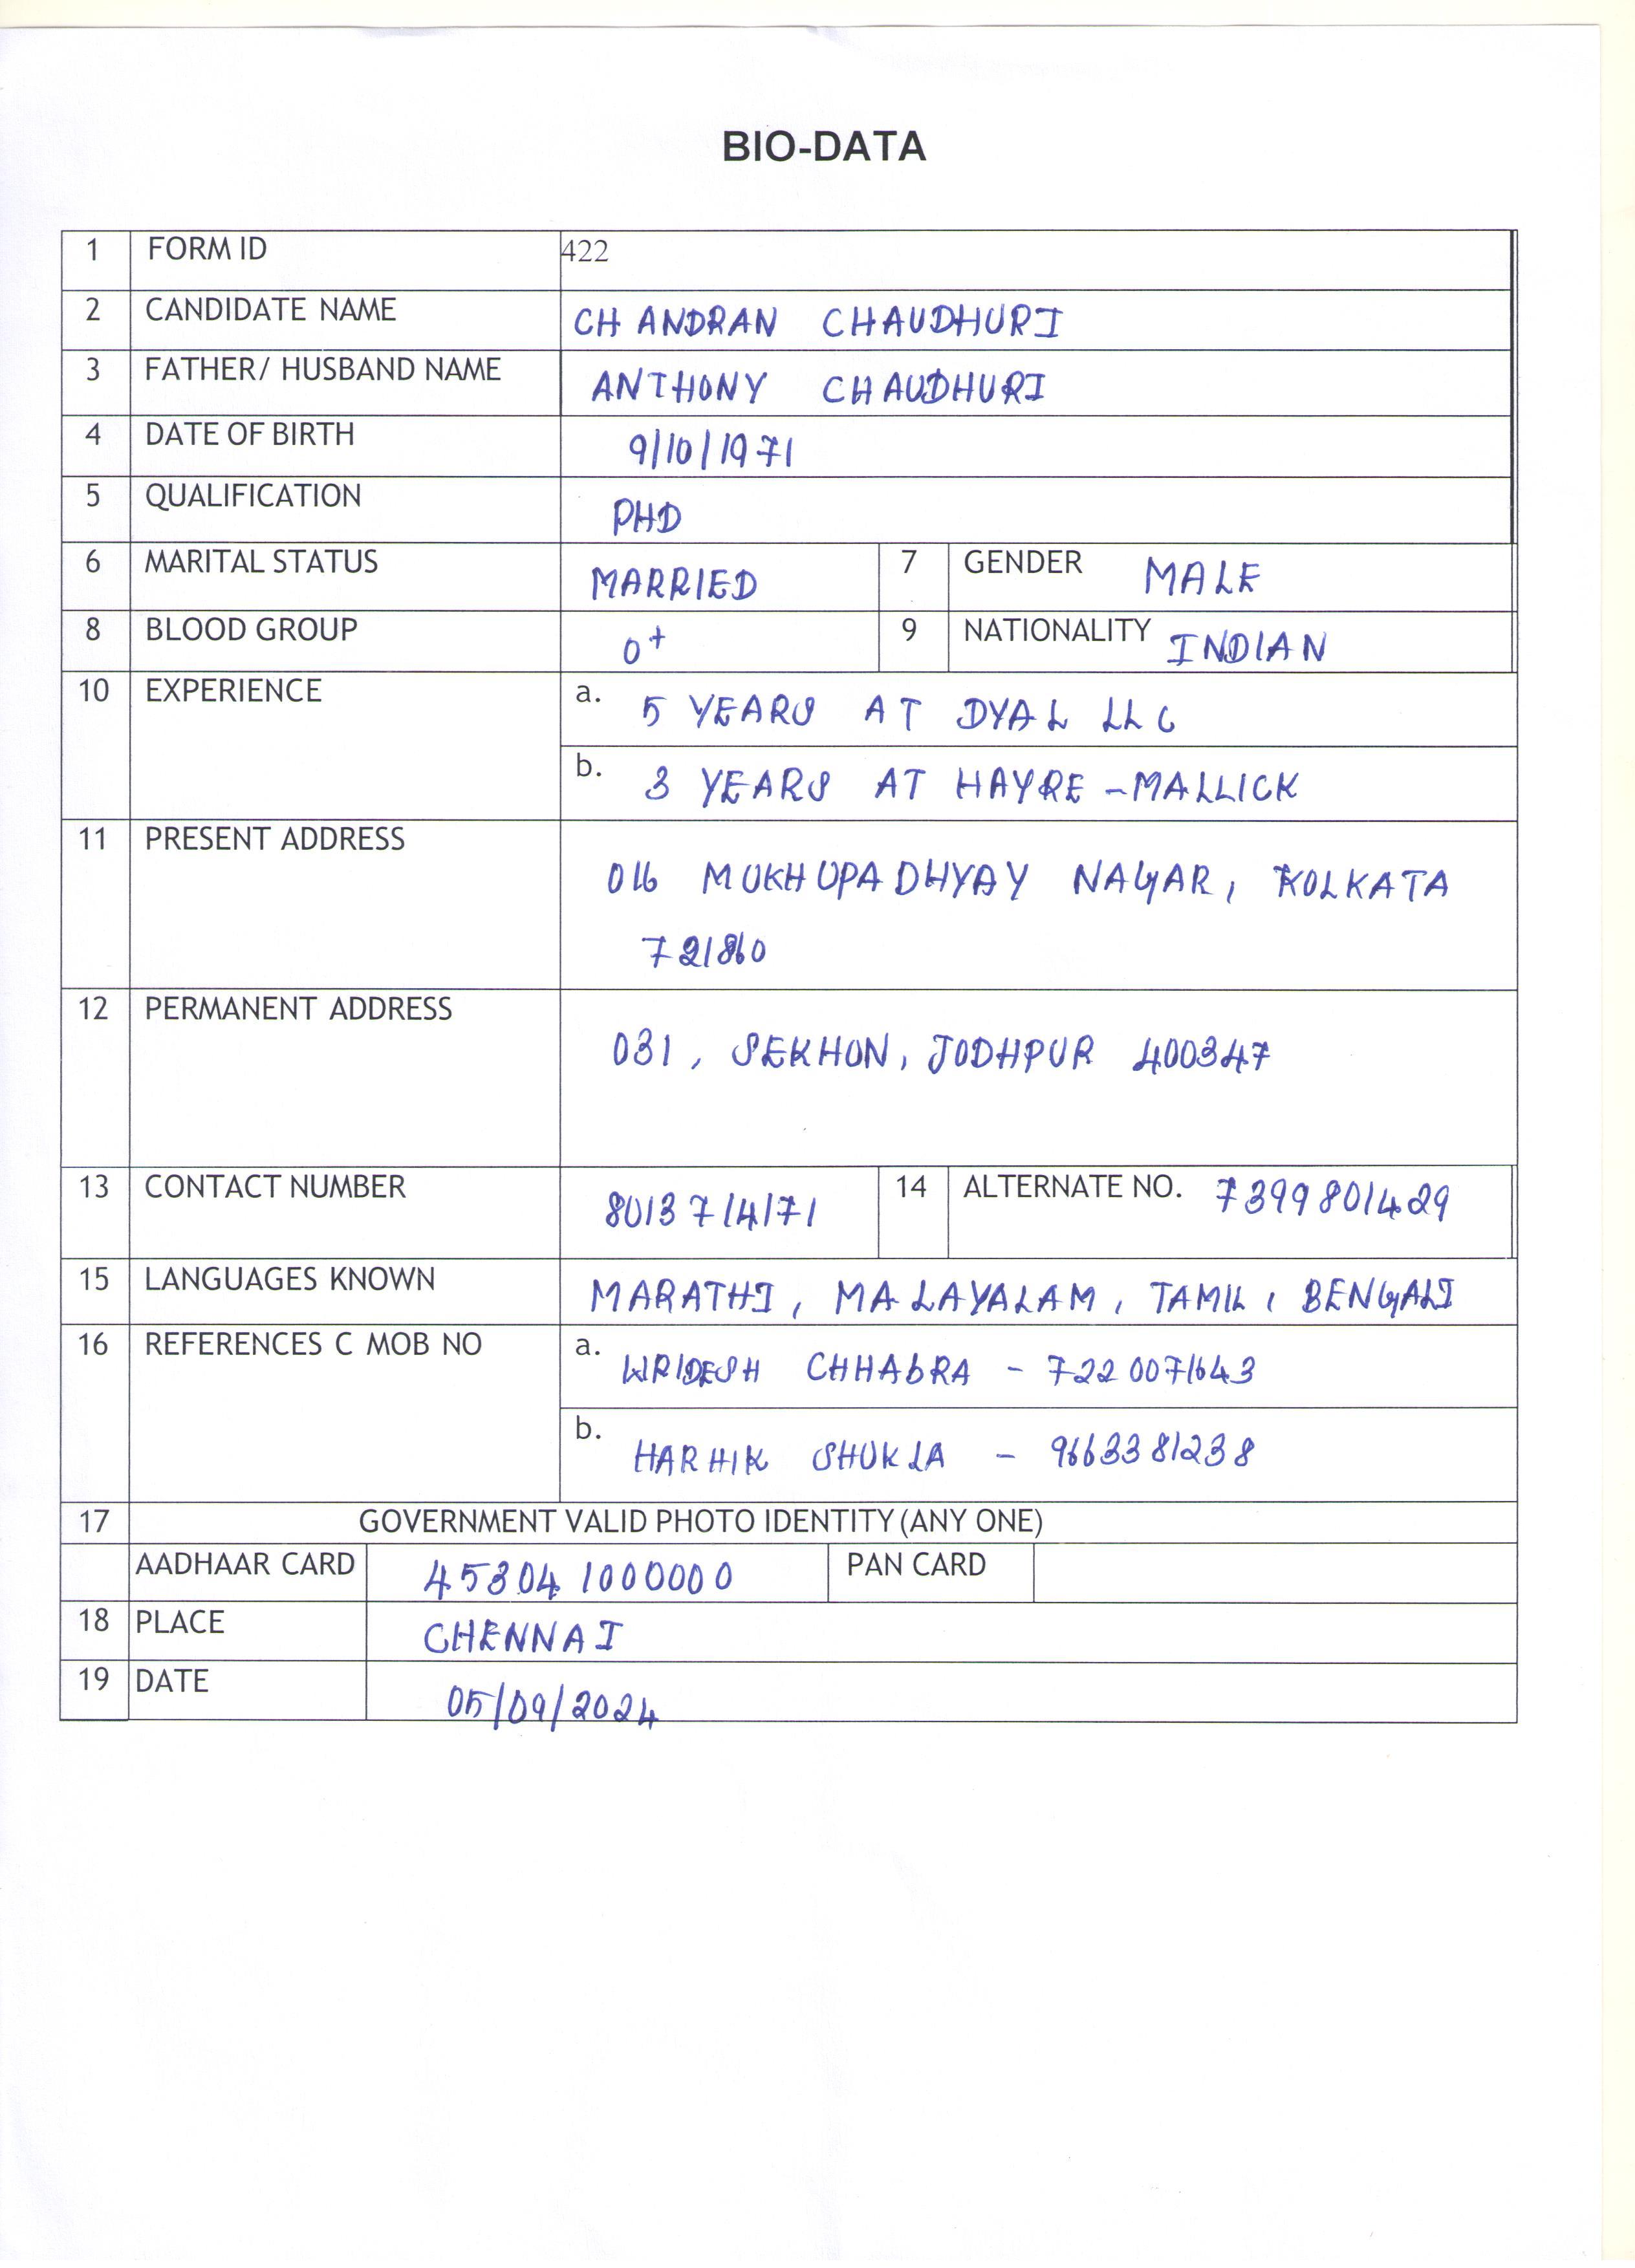 BIO-DATA
1 FORM ID 422
2 CANDIDATE NAME CHANDRAN CHAUDHURI
3 FATHER/ HUSBAND NAME ANTHONY CHAUDHURI
4 DATE OF BIRTH 9/10/1971
5 QUALIFICATION PHD
6 MARITAL STATUS MARRIED 7 GENDER MALE
8 BLOOD GROUP O+ 9 NATIONALITY INDIAN
10 EXPERIENCE a. 5 YEARS AT DYAL LLC
b. 3 YEARS AT HAYRE-MALLICK
11 PRESENT ADDRESS
016 MUKHUPADHYAY NAGAR, KOLKATA
721860
12 PERMANENT ADDRESS
031, SEKHON, JODHPUR 400347
13 CONTACT NUMBER 8013714171 14 ALTERNATE NO. 7399801429
15 LANGUAGES KNOWN MARATHI, MALAYALAM, TAMIL, BENGALI
16 REFERENCES C MOB NO a. CHHABRA - 7220071643
b. HARHIK SHUKLA - 9663381238
17 GOVERNMENT VALID PHOTO IDENTITY (ANY ONE)
AADHAAR CARD 453041000000 PAN CARD
18 PLACE CHENNAI
19 DATE 05/09/2024